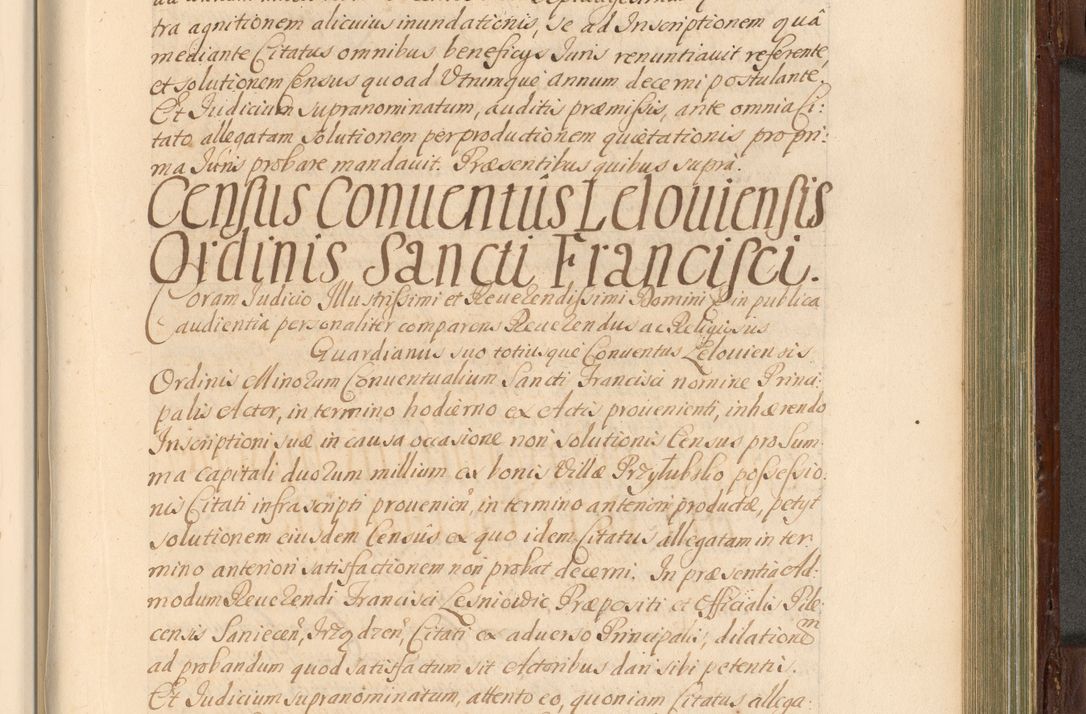 tra agnitionem alicuius inundationis, se ad Inscriptionem quâ
mediante Citatus omnibus beneficijs Juris renuntiavit referente,
et solutionem Census quoad Utrumque annum decerni postulante.
Et Judicium supranominatum, auditis præmissis, ante omnia Ci:
tato allegatam solutionem per productionem quietationis pro pri:
ma Juris probare mandavit. Præsentibus quibus supra.
Census Conventûs Leloviensis
Ordinis Sancti Francisci.
Coram Judicio Illustrissimi et Reverendissimi Domini in publica
audientia personaliter comparens Reverendus ac Religiosus
Guardianus suo totiusque Conventus Leloviensis
Ordinis Minorum Conventualium Sancti Francisci nomine Princi:
palis Actor, in termino hodierno ex Actis provenienti, inhærendo
Inscriptioni suæ in causa occasione non solutionis Census pro Sum:
ma capitali duorum millium ex bonis Villæ Przyłubsko possessio:
nis Citati infrascripti provenien', in termino anteriori productæ, petyt
solutionem eiusdem Censûs ex quo idem Citatus allegatam in ter:
mino anteriori satisfactionem non probat decerni. In præsentia Ad:
modum Reverendi Francisci Lesniowic Præpositi et Officialis Pile
censis Saniecen', Irządzen', Citati ex adverso Principalis, dilationem
ad probandum quod satisfactum sit Actoribus dari sibi petentis.
Et Judicium supranominatum, attento eo, quoniam Citatus allega: